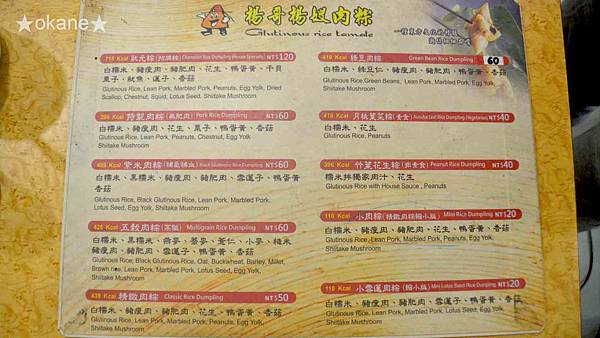 ★okane★
楊哥楊嫂肉粽
Glutinous rice tamale
715 Kcal 狀元粽 (招牌粽) (Champion Rice Dumpling (House Specialty)) NT$120
白糯米、豬瘦肉、豬肥肉、花生、鴨蛋黃、干貝
栗子、魷魚、蓮子、香菇
Glutinous Rice, Lean Pork, Marbled Pork, Peanuts, Egg Yolk, Dried
Scallop, Chestnut, Squid, Lotus Seed, Shiitake Mushroom
Pork Rice Dumpling NT$60
白糯米、豬瘦肉、花生、栗子、鴨蛋黃、香菇
Glutinous Rice, Lean Pork, Peanuts, Chestnut, Egg Yolk
Shiitake Mushroom
紫米肉粽 NT$60
白糯米、黑糯米、豬瘦肉、豬肥肉、雪蓮子、鴨蛋黃
香菇
Glutinous Rice, Black Glutinous Rice, Lean Pork, Marbled Pork,
Lotus Seed, Egg Yolk, Shiitake Mushroom
425 Kcal 五穀肉粽 Multigrain Rice Dumpling NT$60
白糯米、黑糯米、燕麥、蕎麥、薏仁、小麥、糙米
豬瘦肉、豬肥肉、蓮子、鴨蛋黃、香菇
Glutinous Rice, Black Glutinous Rice, Oat, Buckwheat, Barley, Millet,
Brown rice, Lean Pork, Marbled Pork, Lotus Seed, Egg Yolk,
Shiitake Mushroom
435 Kcal 精緻肉粽 Classic Rice Dumpling NT$50
白糯米、豬瘦肉、豬肥肉、花生、鴨蛋黃、香菇
Glutinous Rice, Lean Pork, Marbled Pork, Egg Yolk,
Shiitake Mushroom
418 Kcal 綠豆肉粽 Green Bean Rice Dumpling 60
白糯米、綠豆仁、豬瘦肉、豬肥肉、鴨蛋黃、香菇
Glutinous Rice,Green Beans, Lean Pork, Marbled Pork, Egg Yolk
Shiitake Mushroom
月桃葉菜粽 (素食) NT$40
白糯米、花生
Glutinous Rice, Peanuts
竹葉花生粽 (非素食) Peanut Rice Dumpling NT$40
糯米拌獨家肉汁、花生
Glutinous Rice with House Sauce , Peanuts
110 Kcal 小肉粽 (精緻肉粽縮小版) Mini Rice Dumpling NT$20
白糯米、豬瘦肉、豬肥肉、花生、鴨蛋黃、香菇
Glutinous Rice, Lean Pork, Marbled Pork, Peanuts, Egg Yolk,
Shiitake Mushroom
110 Kcal 小雪蓮肉粽 (縮小版) Mini Lotus Seed Rice Dumpling NT$20
白糯米、豬瘦肉、豬肥肉、雪蓮子、鴨蛋黃、香菇
Glutinous Rice, Lean Pork, Marbled Pork, Lotus Seed, Egg Yolk,
Shiitake Mushroom